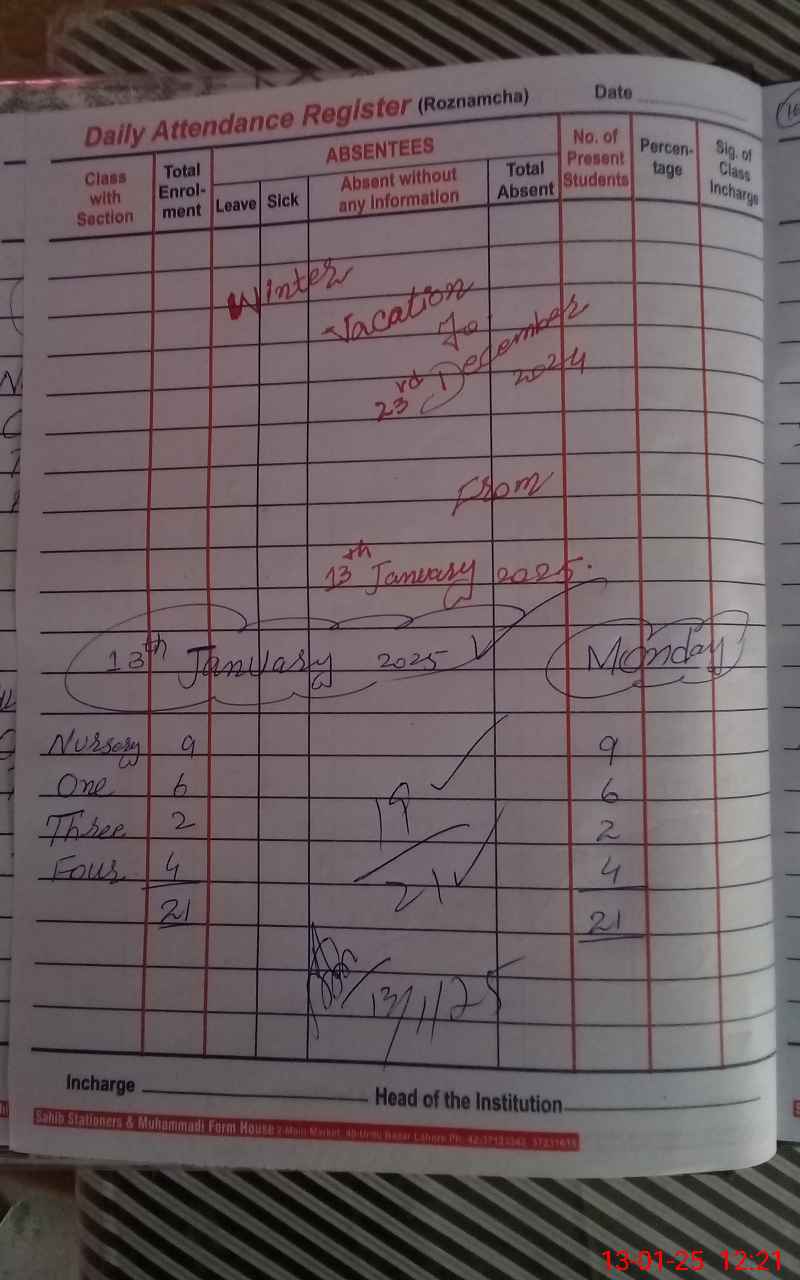 Daily Attendance Register (Roznamcha) Date
Class with Section
Total Enrol-ment
ABSENTEES
Leave
Sick
Absent without any Information
Total Absent
No. of Present Students
Percen-tage
Sig. of Class Incharge
Winter
Vacation
To
23rd December 2024
From
13th January 2025.
13th January 2025 Monday
Nursery 9 9
One 6 19 6
Three 2 2
Four 4 21 4
21 21
13/1/25
Incharge Head of the Institution
Sahib Stationers & Muhammadi Form House 2-Main Market, 40-Urdu Bazar Lahore Ph:
13-01-25 12:21